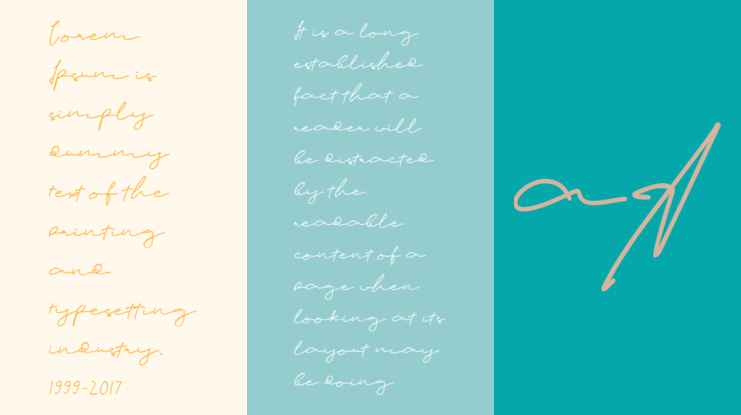 Lorem
Ipsum is
simply
dummy
text of the
printing
and
typesetting
industry.
1999-2017
It is a long
established
fact that a
reader will
be distracted
by the
readable
content of a
page when
looking at its
layout may
be doing